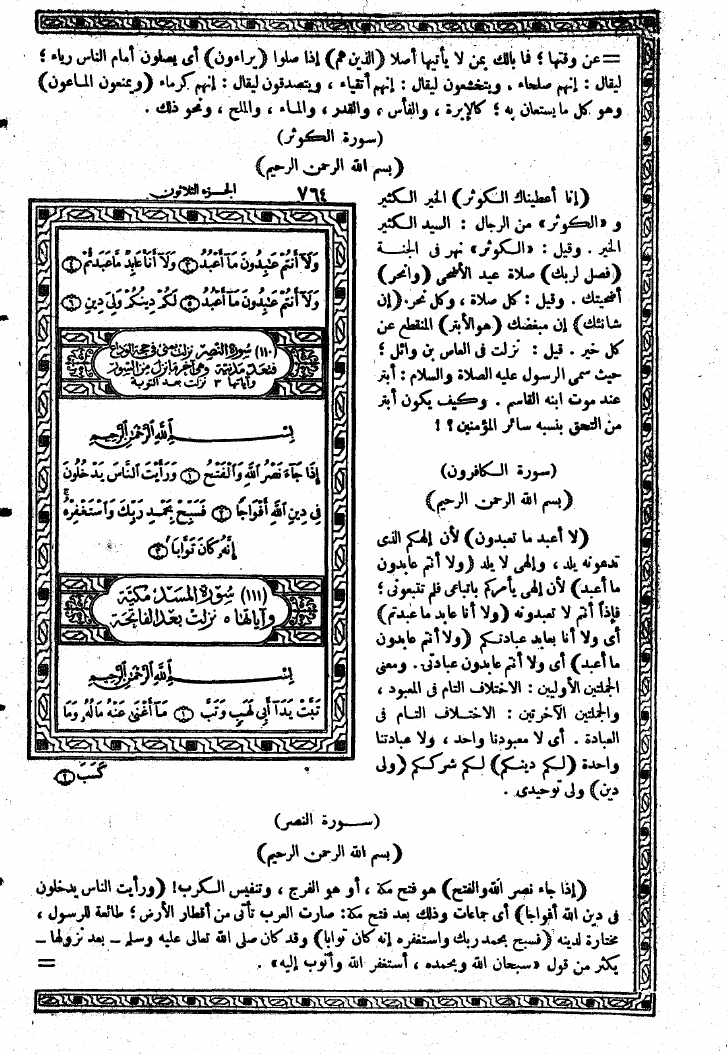 = عن وقتها ؛ فما بالك بمن لا يأتيها أصلا (الذين هم) إذا صلوا (يراءون) أى يصلون أمام الناس رياء ؛
ليقال : إنهم صلحاء . ويتخشعون ليقال : إنهم أتقياء ، ويتصدقون ليقال : إنهم كرماء (ويمنعون الماعون)
وهو كل ما يستعان به ؛ كالإبرة ، والفأس ، والقدر ، والماء ، والملح ، ونحو ذلك .
(سورة الكوثر)
(بسم الله الرحمن الرحيم)
(إنا أعطيناك الكوثر) الخير الكثير
و «الكوثر» من الرجال : السيد الكثير
الخير . وقيل : «الكوثر» نهر فى الجنة
(فصل لربك) صلاة عيد الأضحى (وانحر)
أضحيتك . وقيل : كل صلاة ، وكل نحر . (إن
شانئك) إن مبغضك (هو الأبتر) المنقطع عن
كل خير . قيل : نزلت فى العاص بن وائل ؛
حيث سمى الرسول عليه الصلاة والسلام : أبتر
عند موت ابنه القاسم . وكيف يكون أبتر
من التحق بنسبه سائر المؤمنين ؟ !
(سورة الكافرون)
(بسم الله الرحمن الرحيم)
(لا أعبد ما تعبدون) لأن إلهكم الذى
تدعونه يلد ، وإلهى لا يلد (ولا أنتم عابدون
ما أعبد) لأن إلهى يأمركم باتباعى فلم تتبعونى ؛
فإذا أنتم لا تعبدونه (ولا أنا عابد ما عبدتم)
أى ولا أنا بعابد عبادتكم (ولا أنتم عابدون
ما أعبد) أى ولا أنتم عابدون عبادتى . ومعنى
الجملتين الأوليين : الاختلاف التام فى المعبود ،
والجملتين الآخرتين : الاختلاف التام فى
العبادة . أى لا معبودنا واحد ، ولا عبادتنا
واحدة (لكم دينكم) لكم شرككم (ولى
دين) ولى توحيدى .
٧٦٤ الجزء الثلاثون
وَلَآ أَنتُمْ عَٰبِدُونَ مَآ أَعْبُدُ ٣ وَلَآ أَنَا۠ عَابِدٌ مَّا عَبَدتُّمْ ٤
وَلَآ أَنتُمْ عَٰبِدُونَ مَآ أَعْبُدُ ٥ لَكُمْ دِينُكُمْ وَلِىَ دِينِ ٦
(١١٠) سورة النصر نزلت بمنى فى حجة الوداع
فتعد مدنية وهى آخر ما نزل من السور
وآياتها ٣ نزلت بعد التوبة
بِسْمِ اللَّهِ الرَّحْمَٰنِ الرَّحِيمِ
إِذَا جَآءَ نَصْرُ اللَّهِ وَالْفَتْحُ ١ وَرَأَيْتَ النَّاسَ يَدْخُلُونَ
فِى دِينِ اللَّهِ أَفْوَاجًا ٢ فَسَبِّحْ بِحَمْدِ رَبِّكَ وَاسْتَغْفِرْهُ
إِنَّهُۥ كَانَ تَوَّابًۢا ٣
(١١١) سورة المسد مكية
وآياتها ٥ نزلت بعد الفاتحة
بِسْمِ اللَّهِ الرَّحْمَٰنِ الرَّحِيمِ
تَبَّتْ يَدَآ أَبِى لَهَبٍ وَتَبَّ ١ مَآ أَغْنَىٰ عَنْهُ مَالُهُۥ وَمَا
كَسَبَ ٢
(سورة النصر)
(بسم الله الرحمن الرحيم)
(إذا جاء نصر الله والفتح) هو فتح مكة ، أو هو الفرج ، وتنفيس الكرب ! (ورأيت الناس يدخلون
فى دين الله أفواجا) أى جماعات وذلك بعد فتح مكة : صارت العرب تأتى من أقطار الأرض ؛ طائعة للرسول ،
مختارة لدينه (فسبح بحمد ربك واستغفره إنه كان توابا) وقد كان صلى الله تعالى عليه وسلم – بعد نزولها –
يكثر من قول «سبحان الله وبحمده ، أستغفر الله وأتوب إليه» . =